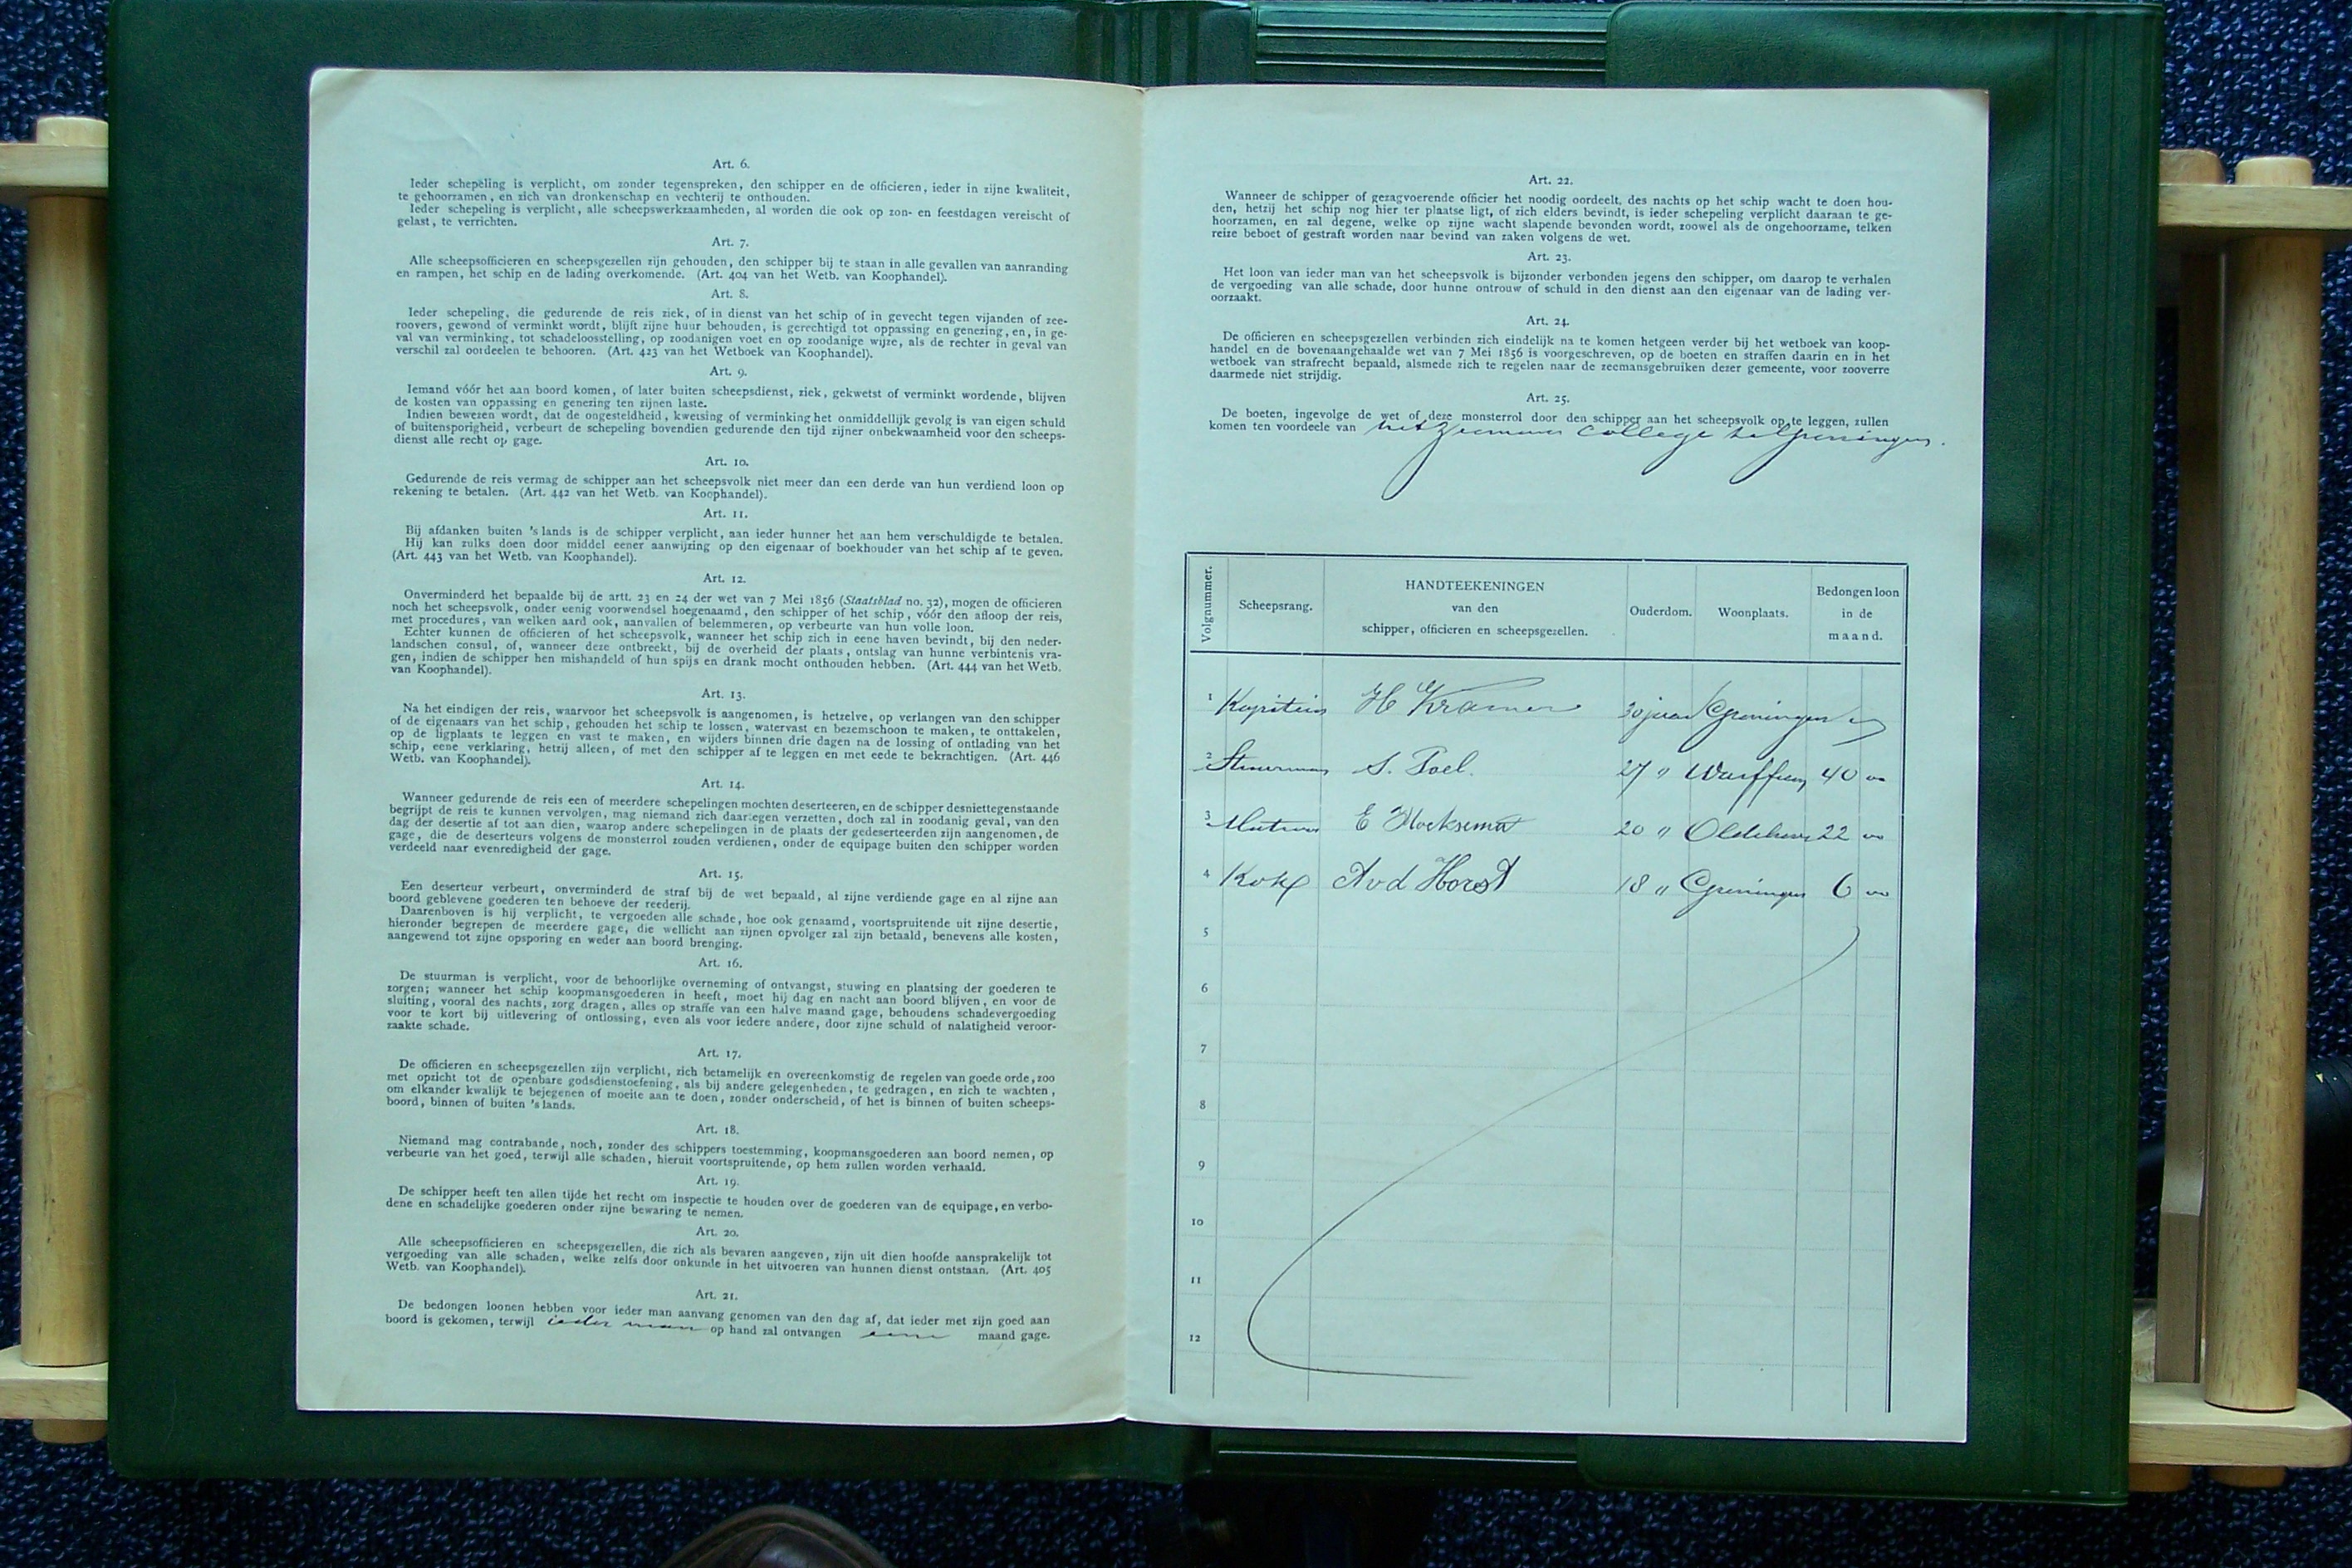 Art. 6.
Ieder schepeling is verplicht, om zonder tegenspreken, den schipper en de officieren, ieder in zijne kwaliteit,
te gehoorzamen, en zich van dronkenschap en vechterij te onthouden.
Ieder schepeling is verplicht, alle scheepswerkzaamheden, al worden die ook op zon- en feestdagen vereischt of
gelast, te verrichten.
Art. 7.
Alle scheepsofficieren en scheepsgezellen zijn gehouden, den schipper bij te staan in alle gevallen van aanranding
en rampen, het schip en de lading overkomende. (Art. 404 van het Wetb. van Koophandel).
Art. 8.
Ieder schepeling, die gedurende de reis ziek, of in dienst van het schip of in gevecht tegen vijanden of zee-
roovers, gewond of verminkt wordt, blijft zijne huur behouden, is gerechtigd tot oppassing en genezing, en, in ge-
val van verminking, tot schadeloosstelling, op zoodanigen voet en op zoodanige wijze, als de rechter in geval van
verschil zal oordeelen te behooren. (Art. 423 van het Wetboek van Koophandel).
Art. 9.
Iemand vóór het aan boord komen, of later buiten scheepsdienst, ziek, gekwetst of verminkt wordende, blijven
de kosten van oppassing en genezing ten zijnen laste.
Indien bewezen wordt, dat de ongesteldheid, kwetsing of verminking het onmiddellijk gevolg is van eigen schuld
of buitensporigheid, verbeurt de schepeling bovendien gedurende den tijd zijner onbekwaamheid voor den scheeps-
dienst alle recht op gage.
Art. 10.
Gedurende de reis vermag de schipper aan het scheepsvolk niet meer dan een derde van hun verdiend loon op
rekening te betalen. (Art. 442 van het Wetb. van Koophandel).
Art. 11.
Bij afdanken buiten 's lands is de schipper verplicht, aan ieder hunner het aan hem verschuldigde te betalen.
Hij kan zulks doen door middel eener aanwijzing op den eigenaar of boekhouder van het schip af te geven.
(Art. 443 van het Wetb. van Koophandel).
Art. 12.
Onverminderd het bepaalde bij de artt. 23 en 24 der wet van 7 Mei 1856 (Staatsblad no. 32), mogen de officieren
noch het scheepsvolk, onder eenig voorwendsel hoegenaamd, den schipper of het schip, vóór den afloop der reis,
met procedures, van welken aard ook, aanvallen of belemmeren, op verbeurte van hun volle loon.
Echter kunnen de officieren of het scheepsvolk, wanneer het schip zich in eene haven bevindt, bij den neder-
landschen consul, of, wanneer deze ontbreekt, bij de overheid der plaats, ontslag van hunne verbintenis vra-
gen, indien de schipper hen mishandeld of hun spijs en drank mocht onthouden hebben. (Art. 444 van het Wetb.
van Koophandel).
Art. 13.
Na het eindigen der reis, waarvoor het scheepsvolk is aangenomen, is hetzelve, op verlangen van den schipper
of de eigenaars van het schip, gehouden het schip te lossen, watervast en bezemschoon te maken, te onttakelen,
op de ligplaats te leggen en vast te maken, en wijders binnen drie dagen na de lossing of ontlading van het
schip, eene verklaring, hetzij alleen, of met den schipper af te leggen en met eede te bekrachtigen. (Art. 446
Wetb. van Koophandel).
Art. 14.
Wanneer gedurende de reis een of meerdere schepelingen mochten deserteeren, en de schipper desniettegenstaande
begrijpt de reis te kunnen vervolgen, mag niemand zich daartegen verzetten, doch zal in zoodanig geval, van den
dag der desertie af tot aan dien, waarop andere schepelingen in de plaats der gedeserteerden zijn aangenomen, de
gage, die de deserteurs volgens de monsterrol zouden verdienen, onder de equipage buiten den schipper worden
verdeeld naar evenredigheid der gage.
Art. 15.
Een deserteur verbeurt, onverminderd de straf bij de wet bepaald, al zijne verdiende gage en al zijne aan
boord geblevene goederen ten behoeve der reederij.
Daarenboven is hij verplicht, te vergoeden alle schade, hoe ook genaamd, voortspruitende uit zijne desertie,
hieronder begrepen de meerdere gage, die wellicht aan zijnen opvolger zal zijn betaald, benevens alle kosten,
aangewend tot zijne opsporing en weder aan boord brenging.
Art. 16.
De stuurman is verplicht, voor de behoorlijke overneming of ontvangst, stuwing en plaatsing der goederen te
zorgen; wanneer het schip koopmansgoederen in heeft, moet hij dag en nacht aan boord blijven, en voor de
sluiting, vooral des nachts, zorg dragen, alles op straffe van een halve maand gage, behoudens schadevergoeding
voor te kort bij uitlevering of ontlossing, even als voor iedere andere, door zijne schuld of nalatigheid veroor-
zaakte schade.
Art. 17.
De officieren en scheepsgezellen zijn verplicht, zich betamelijk en overeenkomstig de regelen van goede orde, zoo
met opzicht tot de openbare godsdienstoefening, als bij andere gelegenheden, te gedragen, en zich te wachten,
om elkander kwalijk te bejegenen of moeite aan te doen, zonder onderscheid, of het is binnen of buiten scheeps-
boord, binnen of buiten 's lands.
Art. 18.
Niemand mag contrabande, noch, zonder des schippers toestemming, koopmansgoederen aan boord nemen, op
verbeurte van het goed, terwijl alle schaden, hieruit voortspruitende, op hem zullen worden verhaald.
Art. 19.
De schipper heeft ten allen tijde het recht om inspectie te houden over de goederen van de equipage, en verbo-
dene en schadelijke goederen onder zijne bewaring te nemen.
Art. 20.
Alle scheepsofficieren en scheepsgezellen, die zich als bevaren aangeven, zijn uit dien hoofde aansprakelijk tot
vergoeding van alle schaden, welke zelfs door onkunde in het uitvoeren van hunnen dienst ontstaan. (Art. 405
Wetb. van Koophandel).
Art. 21.
De bedongen loonen hebben voor ieder man aanvang genomen van den dag af, dat ieder met zijn goed aan
boord is gekomen, terwijl ieder man op hand zal ontvangen eene maand gage.
Art. 22.
Wanneer de schipper of gezagvoerende officier het noodig oordeelt, des nachts op het schip wacht te doen hou-
den, hetzij het schip nog hier ter plaatse ligt, of zich elders bevindt, is ieder schepeling verplicht daaraan te ge-
hoorzamen, en zal degene, welke op zijne wacht slapende bevonden wordt, zoowel als de ongehoorzame, telken
reize beboet of gestraft worden naar bevind van zaken volgens de wet.
Art. 23.
Het loon van ieder man van het scheepsvolk is bijzonder verbonden jegens den schipper, om daarop te verhalen
de vergoeding van alle schade, door hunne ontrouw of schuld in den dienst aan den eigenaar van de lading ver-
oorzaakt.
Art. 24.
De officieren en scheepsgezellen verbinden zich eindelijk na te komen hetgeen verder bij het wetboek van koop-
handel en de bovenaangehaalde wet van 7 Mei 1856 is voorgeschreven, op de boeten en straffen daarin en in het
wetboek van strafrecht bepaald, alsmede zich te regelen naar de zeemansgebruiken dezer gemeente, voor zooverre
daarmede niet strijdig.
Art. 25.
De boeten, ingevolge de wet of deze monsterrol door den schipper aan het scheepsvolk op te leggen, zullen
komen ten voordeele van het Zeemans College te Groningen.
Volgnummer. Scheepsrang. HANDTEEKENINGEN van den schipper, officieren en scheepsgezellen. Ouderdom. Woonplaats. Bedongen loon in de maand.
1 Kapitein H Kramer 30 jaar Groningen
2 Stuurman S. Poel. 27 " Warffum 40 00
3 Matroos E Hoeksema 20 " Oldehove 22 00
4 Kok A v d Horst 18 " Groningen 6 00
5
6
7
8
9
10
11
12